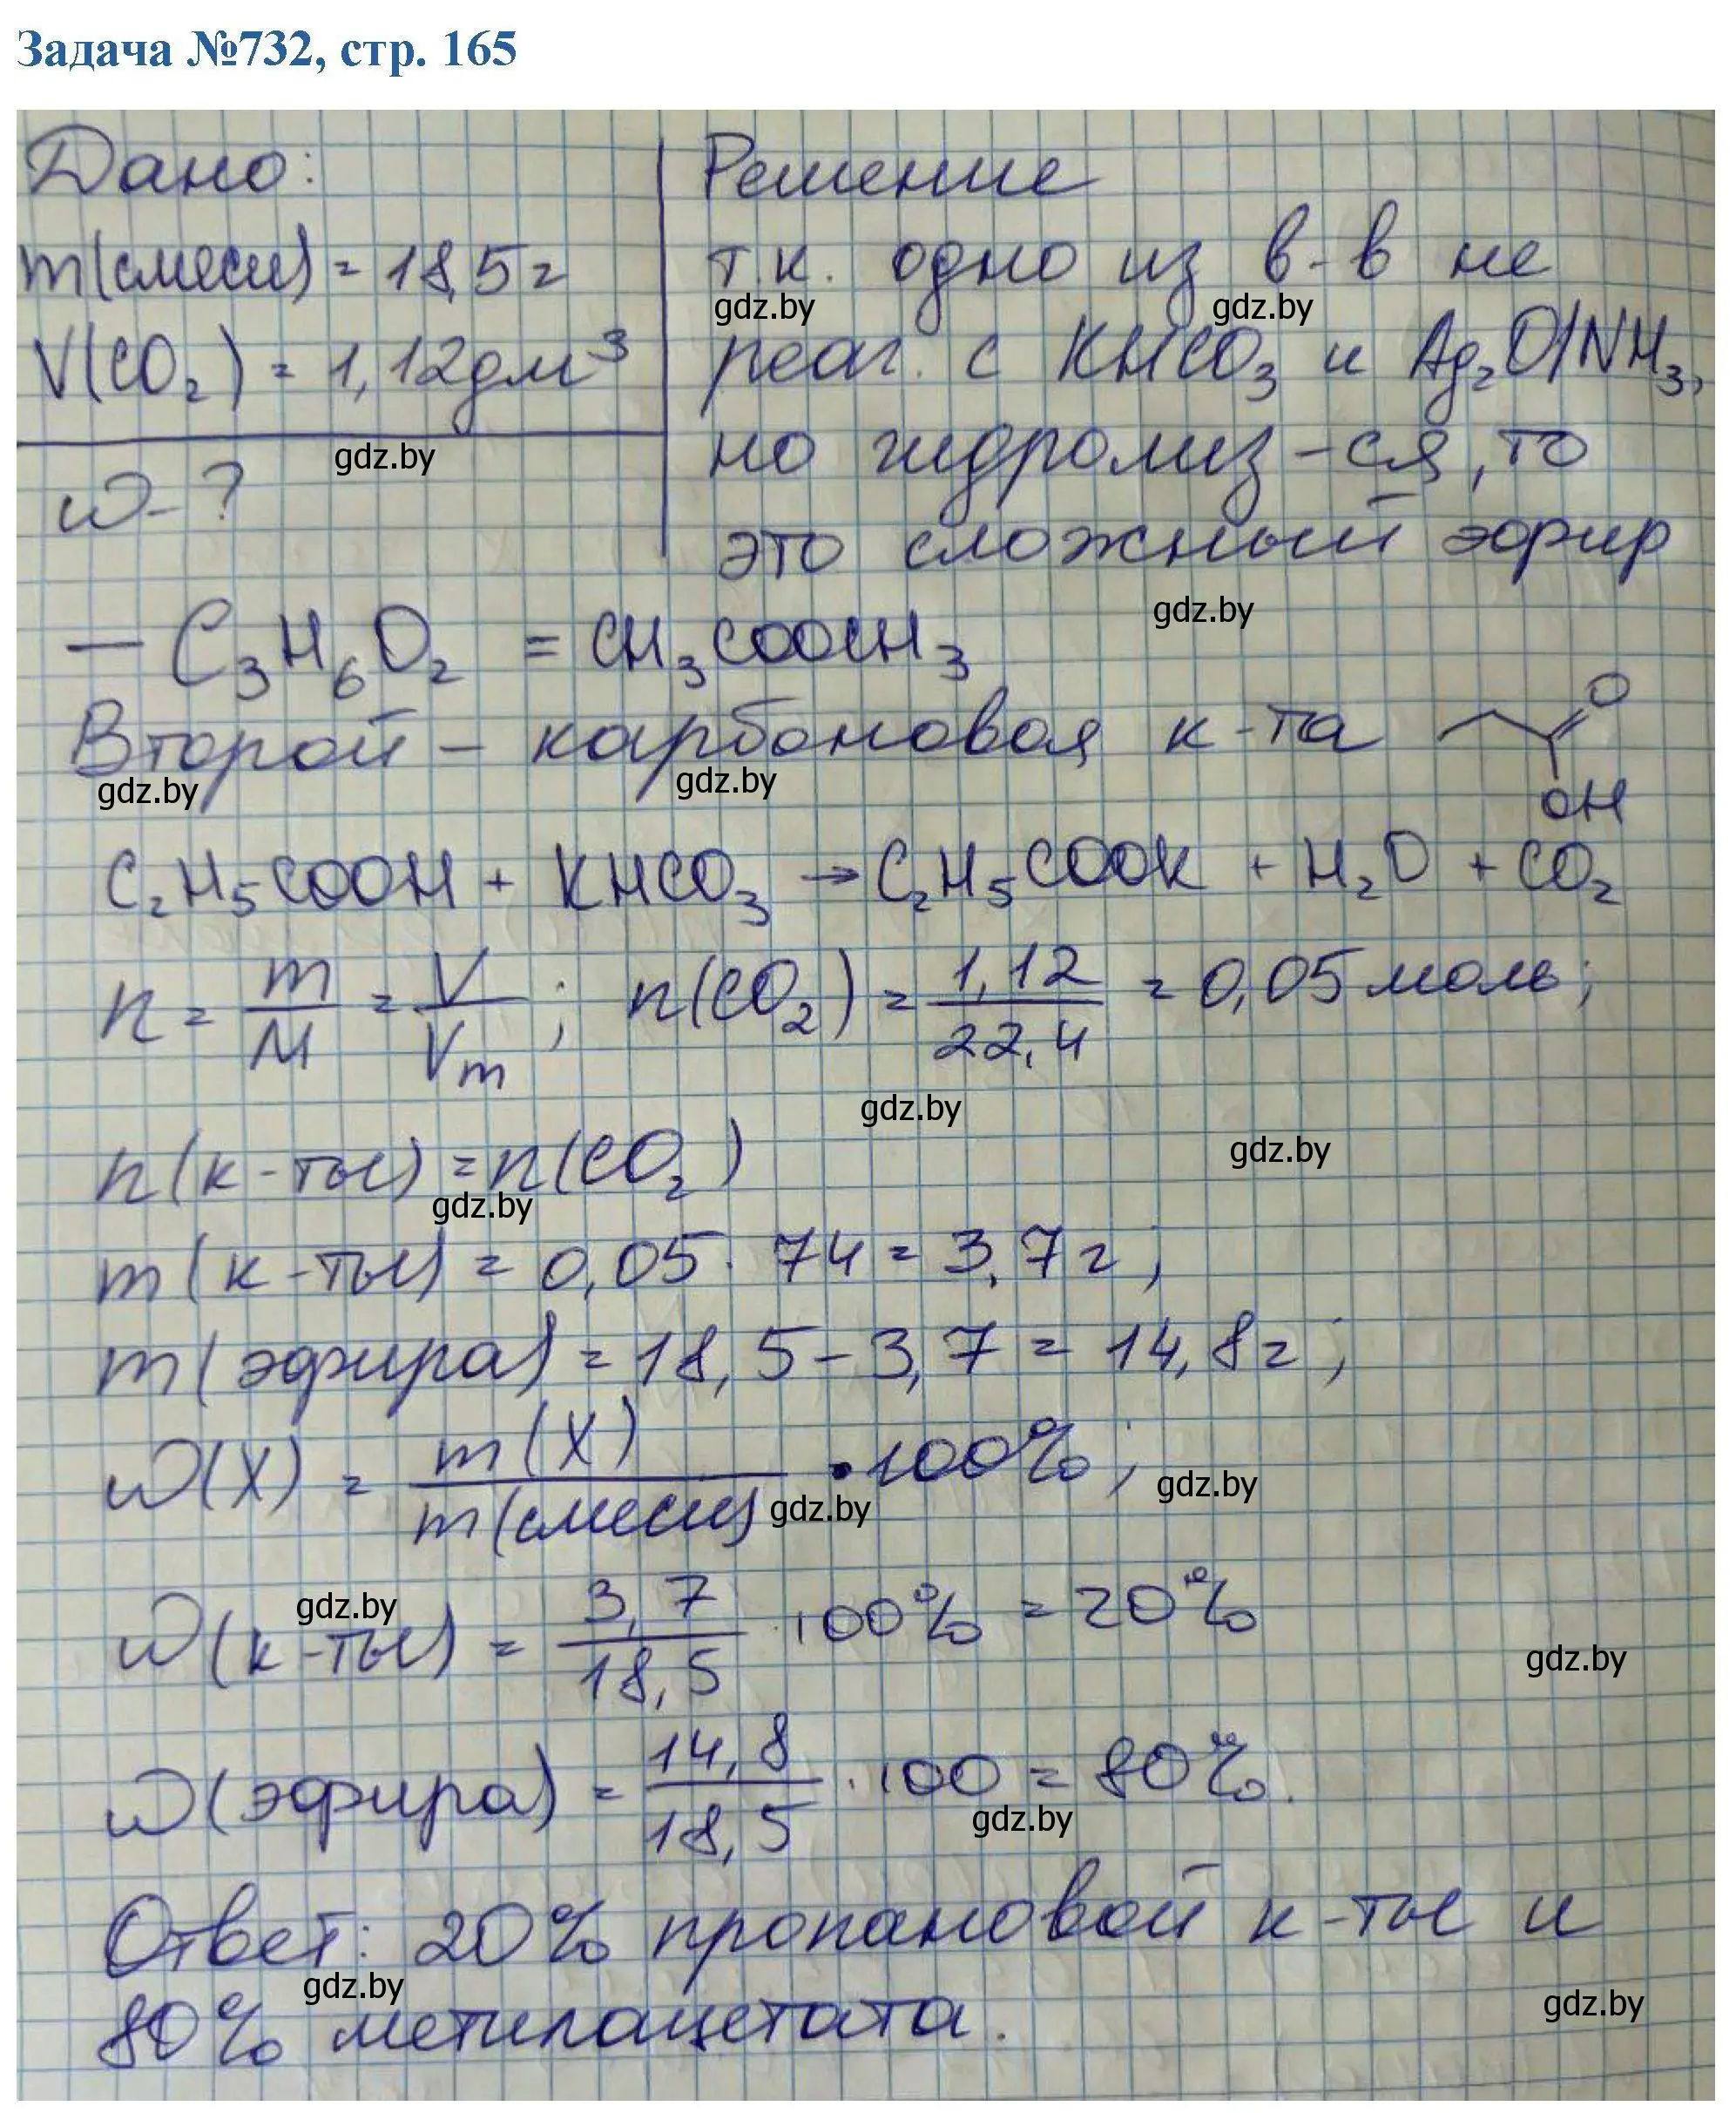 Задача №732, стр. 165
Дано:
m(смеси) = 18,5 г
V(CO₂) = 1,12 дм³
gdz.by
ω - ?
Решение
т.к. одно из в-в не
gdz.by gdz.by
реаг. с KHCO₃ и Ag₂O/NH₃,
но гидролиз-ся, то
это сложный эфир
gdz.by
— C₃H₆O₂ = CH₃COOCH₃
Второй - карбоновая к-та
O
OH
gdz.by gdz.by
C₂H₅COOH + KHCO₃ → C₂H₅COOK + H₂O + CO₂
n = m/M = V/Vm ; n(CO₂) = 1,12/22,4 = 0,05 моль;
gdz.by
gdz.by
n(к-ты) = n(CO₂)
gdz.by
m(к-ты) = 0,05 · 74 = 3,7 г;
m(эфира) = 18,5 - 3,7 = 14,8 г;
ω(X) = m(X)/m(смеси) · 100%;
gdz.by gdz.by
gdz.by
ω(к-ты) = 3,7/18,5 · 100% = 20%
gdz.by
ω(эфира) = 14,8/18,5 · 100 = 80%.
gdz.by
Ответ: 20% пропановой к-ты и
gdz.by
80% метилацетата.
gdz.by